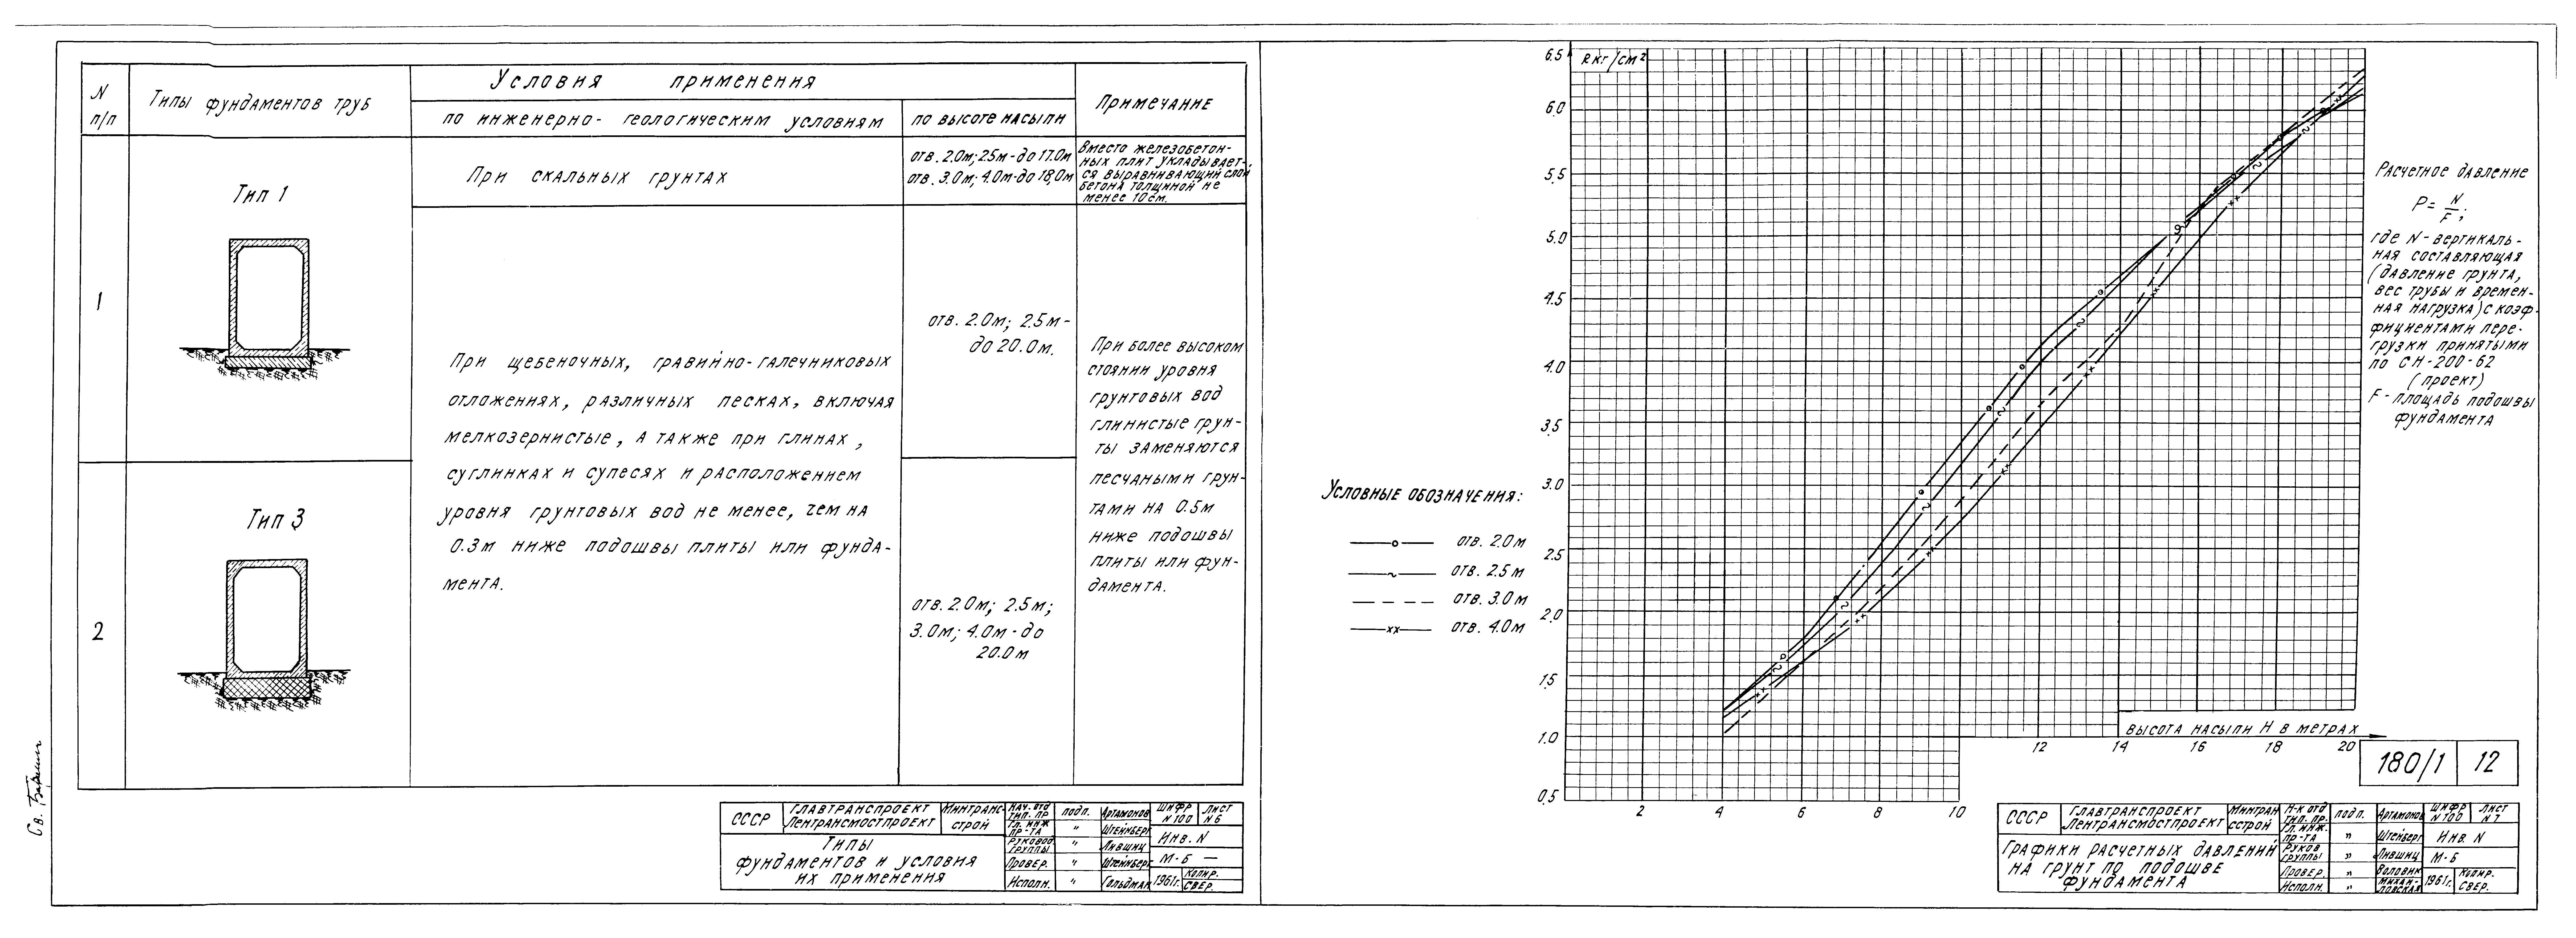 N п/п
Типы фундаментов труб
Условия применения
по инженерно-геологическим условиям
по высоте насыпи
Примечание
1
Тип 1
При скальных грунтах
отв. 2.0м; 2.5м - до 17.0м
отв. 3.0м; 4.0м - до 18.0м
Вместо железобетон-
ных плит укладывает-
ся выравнивающий слой
бетона толщиной не
менее 10 см.
При щебеночных, гравийно-галечниковых
отложениях, различных песках, включая
мелкозернистые, а также при глинах,
суглинках и супесях и расположением
уровня грунтовых вод не менее, чем на
0.3м ниже подошвы плиты или фунда-
мента.
отв. 2.0м; 2.5м -
до 20.0м.
При более высоком
стоянии уровня
грунтовых вод
глинистые грун-
ты заменяются
песчаными грун-
тами на 0.5м
ниже подошвы
плиты или фун-
дамента.
2
Тип 3
отв. 2.0м; 2.5м;
3.0м; 4.0м - до
20.0м
СССР
Главтранспроект
Лентрансмостпроект
Минтранс-
строй
Типы
фундаментов и условия
их применения
Нач. отд тип. пр подп. Артамонов
Гл. инж пр-та " Штейнберг
Руковод. группы " Лившиц
Провер. " Штейнберг
Исполн. " Гольдман
Шифр N 100
Лист N 6
Инв. N
М-Б —
1961г.
Копир.
Свер.
R кг/см²
6.5
6.0
5.5
5.0
4.5
4.0
3.5
3.0
2.5
2.0
1.5
1.0
0.5
2 4 6 8 10 12 14 16 18 20
Высота насыпи H в метрах
Условные обозначения:
отв. 2.0м
отв. 2.5м
отв. 3.0м
отв. 4.0м
Расчетное давление
P = N/F;
где N - вертикаль-
ная составляющая
(давление грунта,
вес трубы и времен-
ная нагрузка) с коэф-
фициентами пере-
грузки принятыми
по СН-200-62
(проект)
F - площадь подошвы
фундамента
180/1 12
СССР
Главтранспроект
Лентрансмостпроект
Минтран
сстрой
Графики расчетных давлений
на грунт по подошве
фундамента
Н-к отд тип. пр. подп. Артамонов
Гл. инж. пр-та " Штейберг
Руков группы " Лившиц
Провер. " Воловик
Исполн. "
Шифр N 100
Лист N 7
Инв. N
М-Б
1961г.
Копир.
Свер.